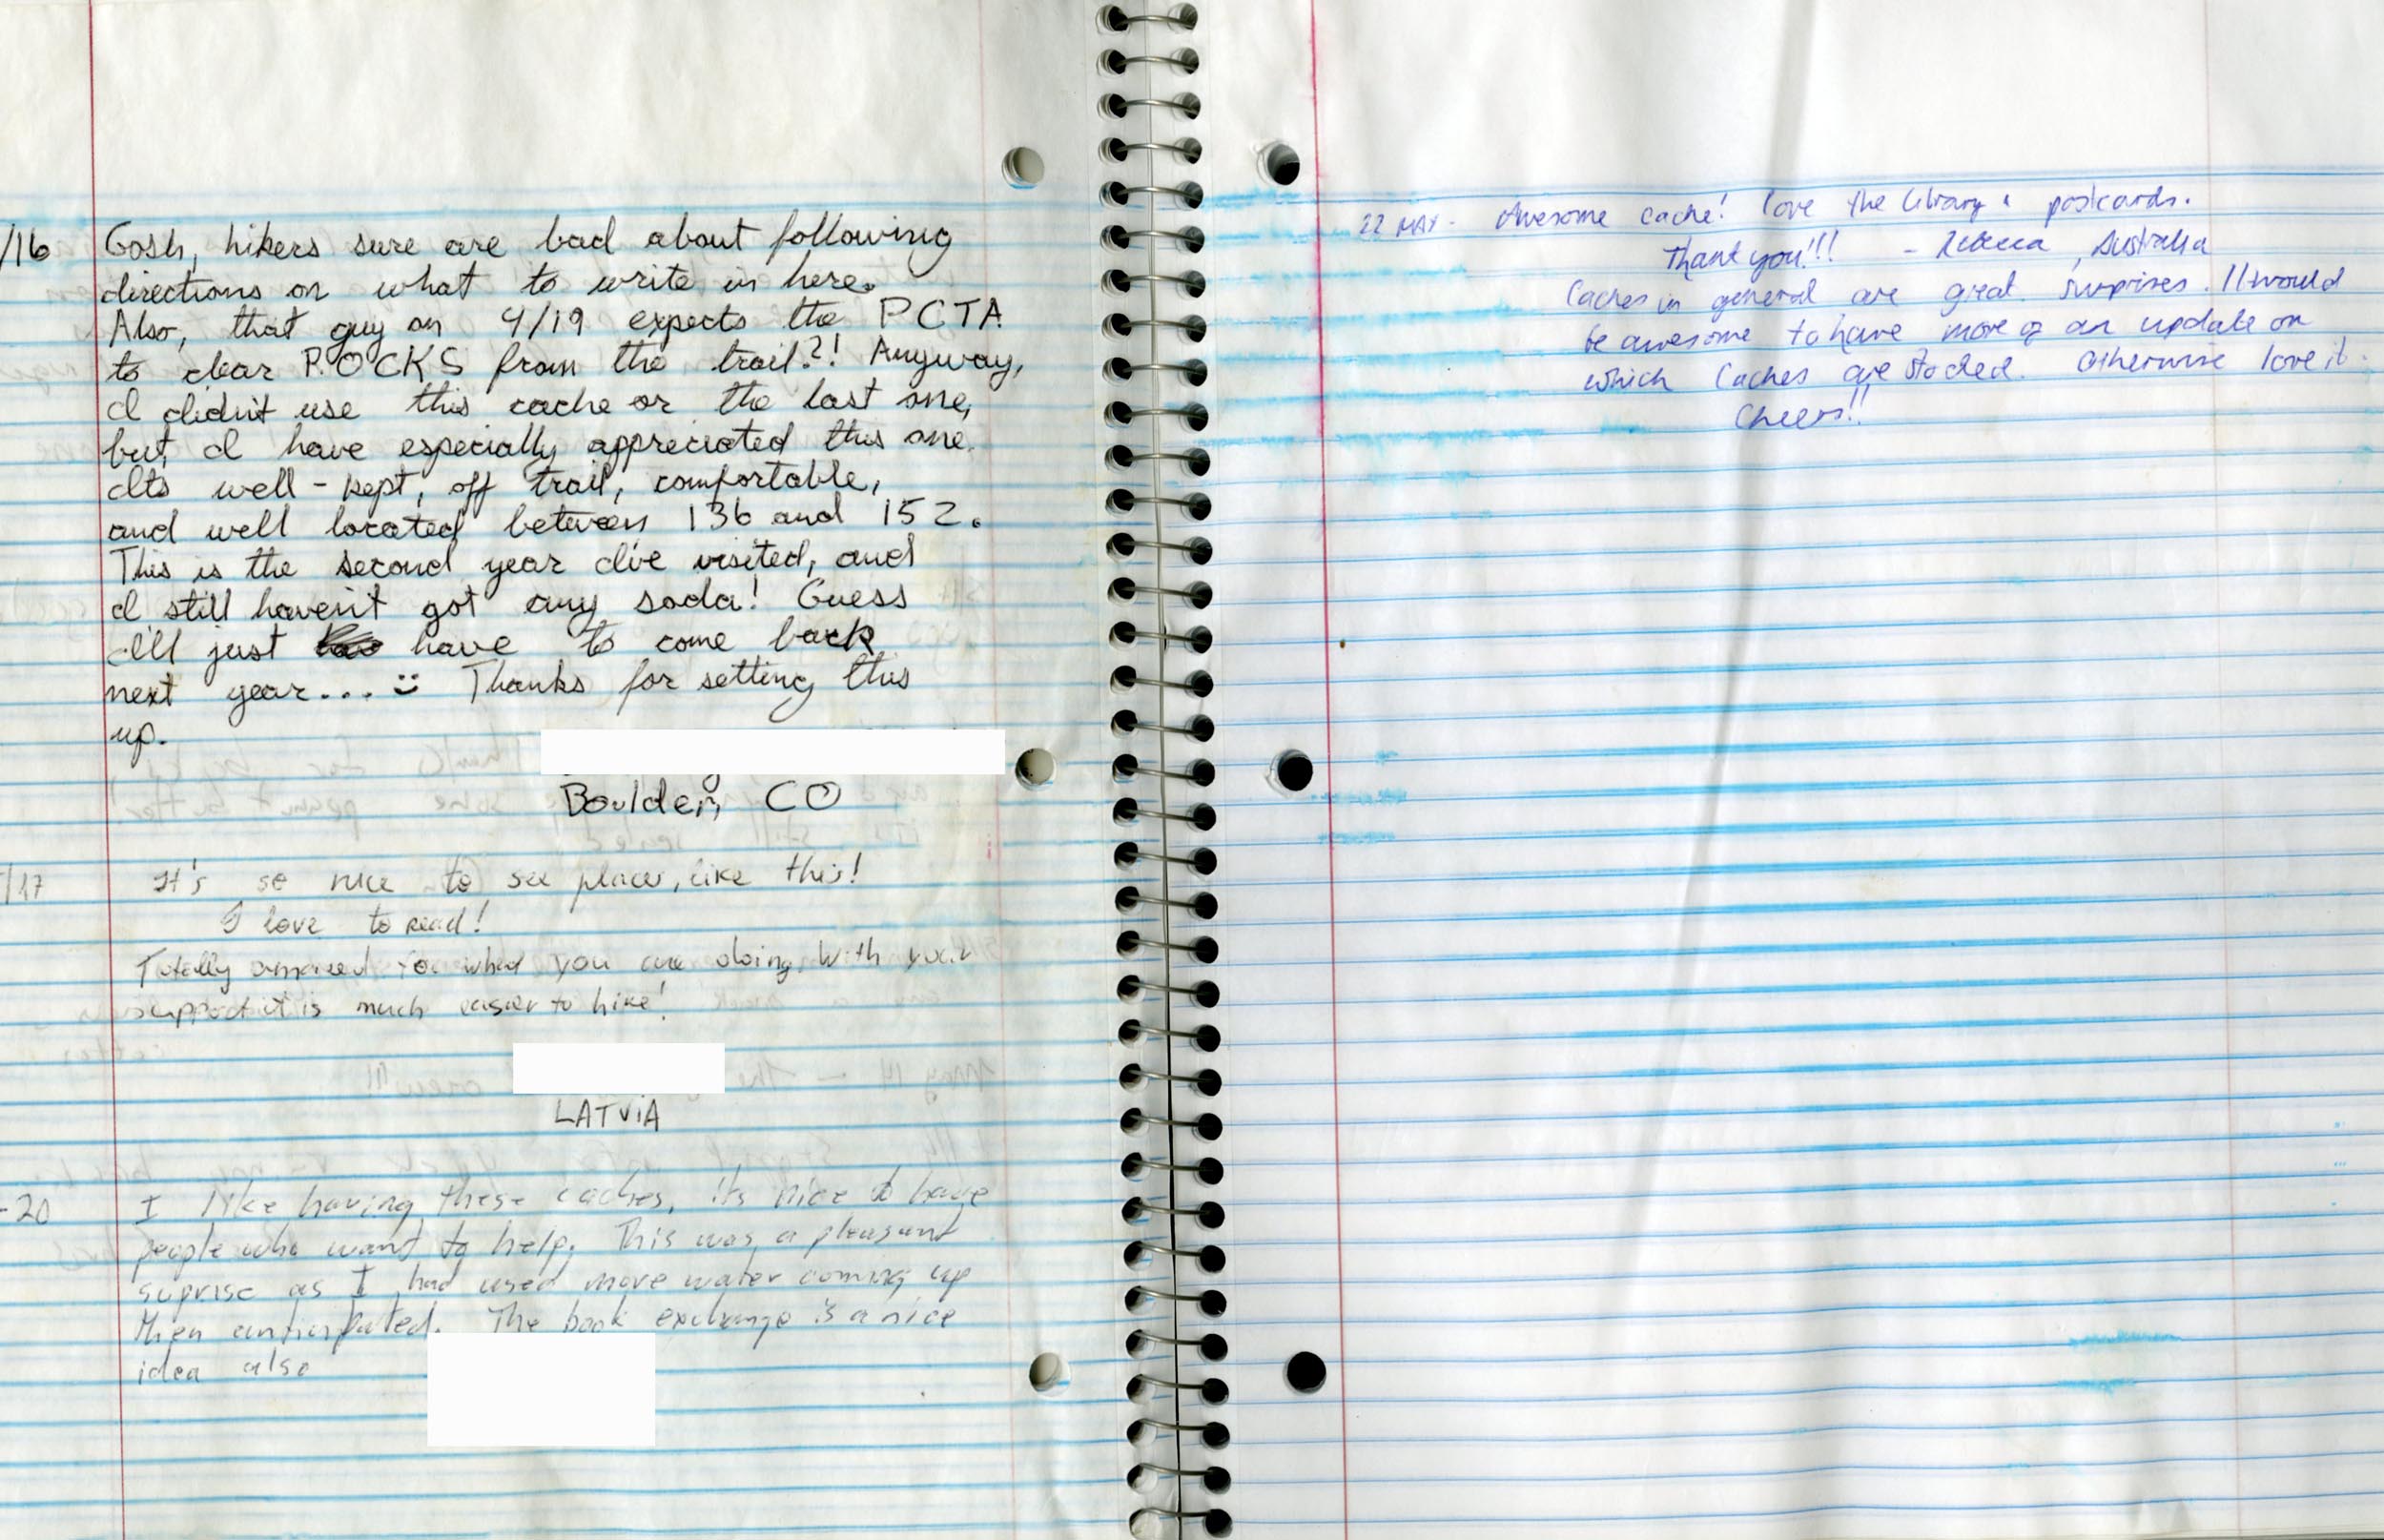 /16 Gosh, hikers sure are bad about following
directions on what to write in here.
Also, that guy on 4/19 expects the PCTA
to clear ROCKS from the trail?! Anyway,
I didn't use this cache or the last one,
but I have especially appreciated this one.
Its well-kept, off trail, comfortable,
and well located between 136 and 152.
This is the second year I've visited, and
I still haven't got any soda! Guess
I'll just have to come back
next year... Thanks for setting this
up.
Boulder, CO
/17 It's so nice to see places like this!
I love to read!
Totally amazed for what you are doing. With your
support it is much easier to hike!
LATViA
-20 I like having these caches, its nice to have
people who want to help. This was a pleasant
suprise as I had used more water coming up
then anticipated. The book exchange is a nice
idea also
22 MAY - Awesome cache! love the library & postcards.
Thank you!!! - Rebecca, Australia
Caches in general are great surprises. It would
be awesome to have more of an update on
which Caches are stocked. Otherwise love it.
Cheers!!